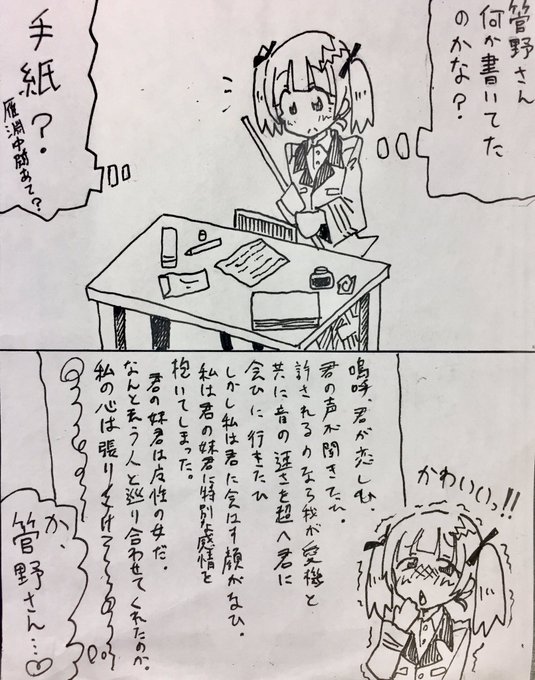 管野さん
何か書いてた
のかな？
手紙？
雁淵中尉あて？
かわいいっ!!
嗚呼、君が恋しひ、
君の声が聞きたひ、
許されるのなら我が愛機と
共に音の速さを超へ君に
会ひに行きたひ
しかし私は君に会はす顔がなひ。
私は君の妹君に特別な感情を
抱いてしまった。
君の妹君は
の女だ。
なんと云う人と巡り合わせてくれたのか。
私の心は張り
か、
管野さん…♡